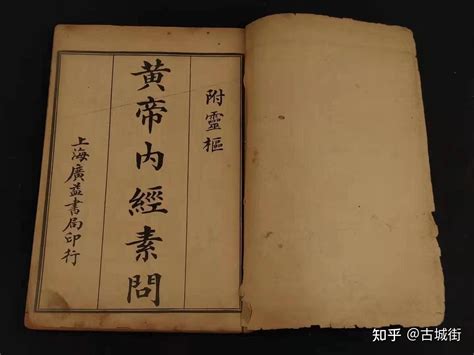 附靈樞
黄帝内經素問
上海廣益書局印行
知乎 @古城街